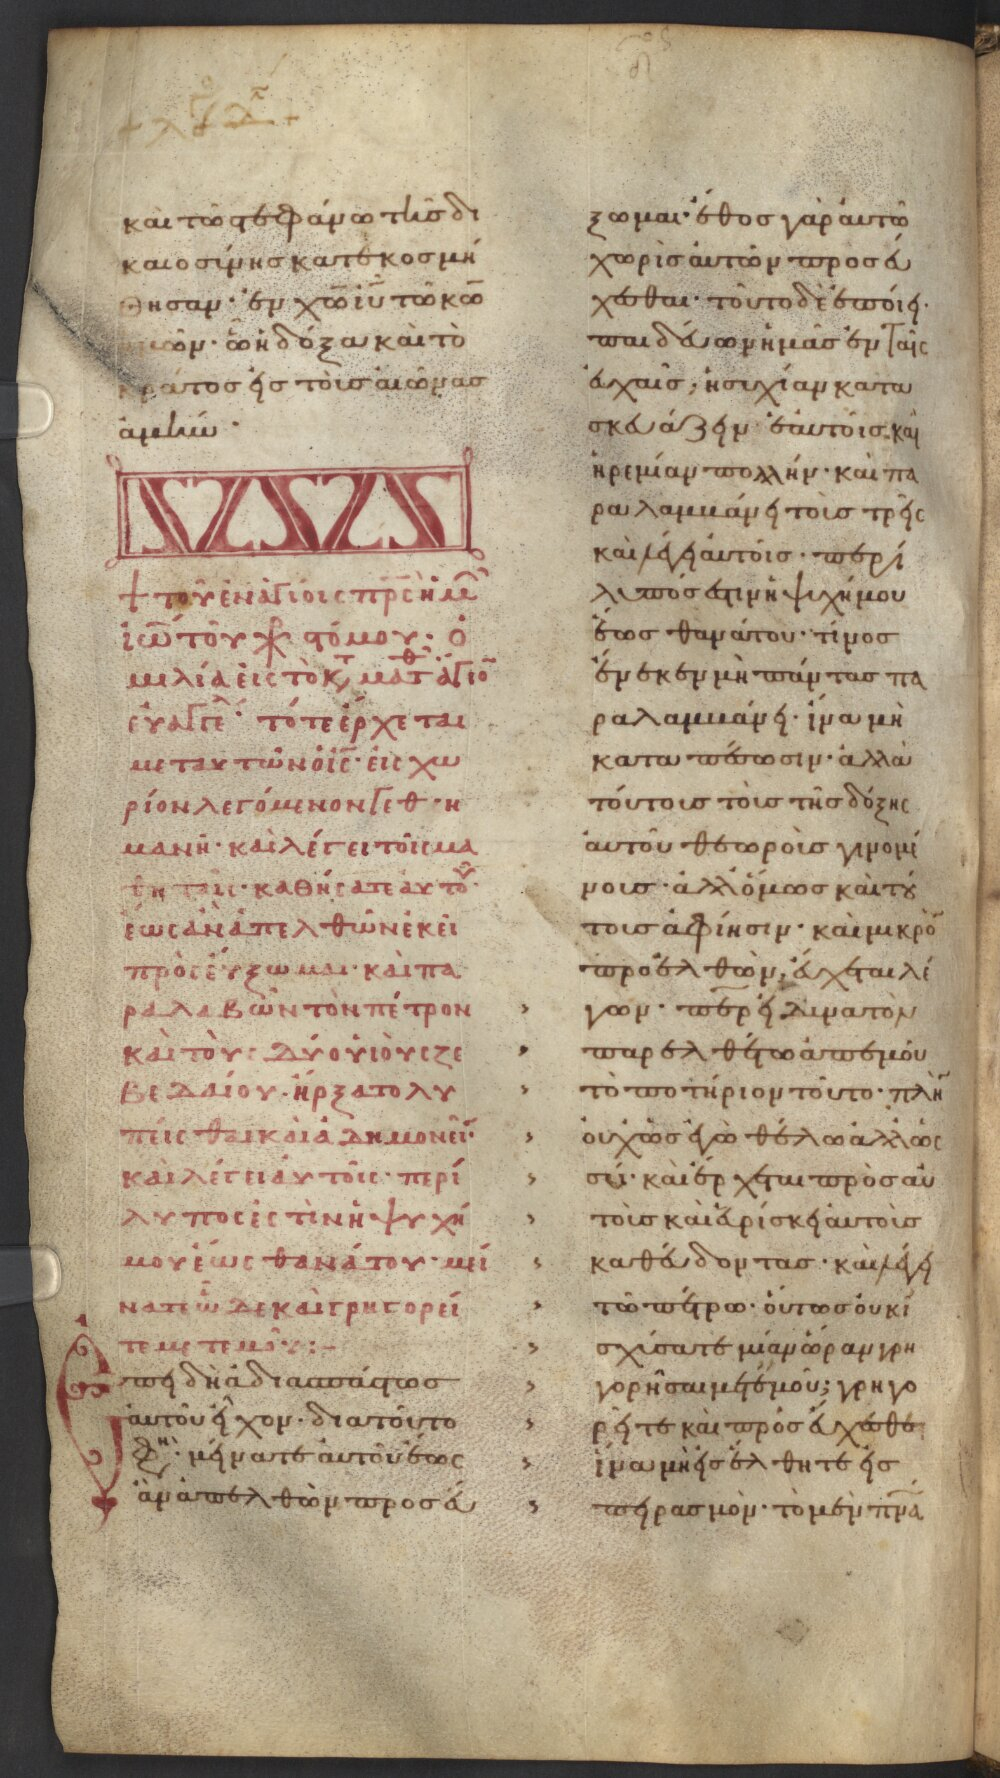 καὶ τῶ στεφάνω τῆς δι
καιοσύνης κατεκοσμή
θησαν· ἐν χω ιυ τῶ κω
ἡμῶν· ὧ ἡ δόξα καὶ τὸ
κράτος εἰς τοὺς αἰῶνας
ἀμήν·
+ τοῦ ἐν ἁγίοις πρς ἡμ
ἰω τοῦ χρ στόμου· ὁ
μιλία εἰς τὸ κτ ματθ ἅγιο
εὐαγγε· τότε ἔρχεται
μετ αυτῶν ὁ ις· εἰς χω
ρίον λεγόμενον γεθ·ση
μανῆ· καὶ λέγει τοῖς μα
θηταῖς· καθήσατε αυτοῦ·
ἕως ἂν ἀπελθὼν ἐκεῖ
προσεύξωμαι· καὶ πα
ραλαβὼν τὸν πέτρον
καὶ τοὺς δύο υἱοὺς ζε
βεδαίου· ἤρξατο λυ
πεῖσθαι καὶ ἀδημονεῖν·
καὶ λέγει αὐτοῖς· περί
λυπός ἐστιν ἡ ψυχή
μου ἕως θανάτου· μεί
νατε ὧδε καὶ γρηγορεῖ
τε μετ εμοῦ:–
Επειδὴ ἀδιασπάστως
αὐτοῦ εἶχον· δια τοῦτο
φησὶ· μείνατε αὐτοῦ ἕως
ἂν ἀπελθὼν προσεύ
ξωμαι· ἔθος γὰρ αὐτῶ
χωρὶς αὐτῶν προσεύ
χεσθαι· τοῦτο δὲ ἐποίει·
παιδεύων ἡμᾶς ἐν ταῖς
εὐχαῖς, ἡσυχίαν κατα
σκευάζειν ἑαυτοῖς καὶ
ἠρεμίαν πολλήν· καὶ πα
ραλαμβάνει τοὺς τρεῖς
καὶ λέγει αὐτοῖς· περί
λυπός ἐστιν ἡ ψυχή μου
ἕως θανάτου· τίνος
ἕνεκεν μὴ πάντας πα
ραλαμβάνει· ἵνα μὴ
καταπέσωσιν· ἀλλὰ
τούτους τοὺς τῆς δόξης
αὐτοῦ θεωροὺς γινομέ
νους· ἀλλ ὅμως καὶ τού
τους ἀφίησιν· καὶ μικρὸ
προελθὼν, εὔχεται λέ
γων· περ εἰ δυνατὸν
παρελθέτω ἀπ εμοῦ
τὸ ποτήριον τοῦτο· πλὴν
οὐχ ὡς ἐγὼ θέλω ἀλλ ὡς
σύ· καὶ ἔρχεται πρὸς αὐ
τοὺς καὶ εὑρίσκει αὐτοὺς
καθεύδοντας· καὶ λέγει
τῶ πέτρω· οὕτως οὐκ ἰ
σχύσατε μίαν ὥραν γρη
γορῆσαι μετ εμοῦ; γρηγο
ρεῖτε καὶ προσεύχεσθε
ἵνα μὴ εἰσέλθητε εἰς
πειρασμὸν· τὸ μὲν πνα